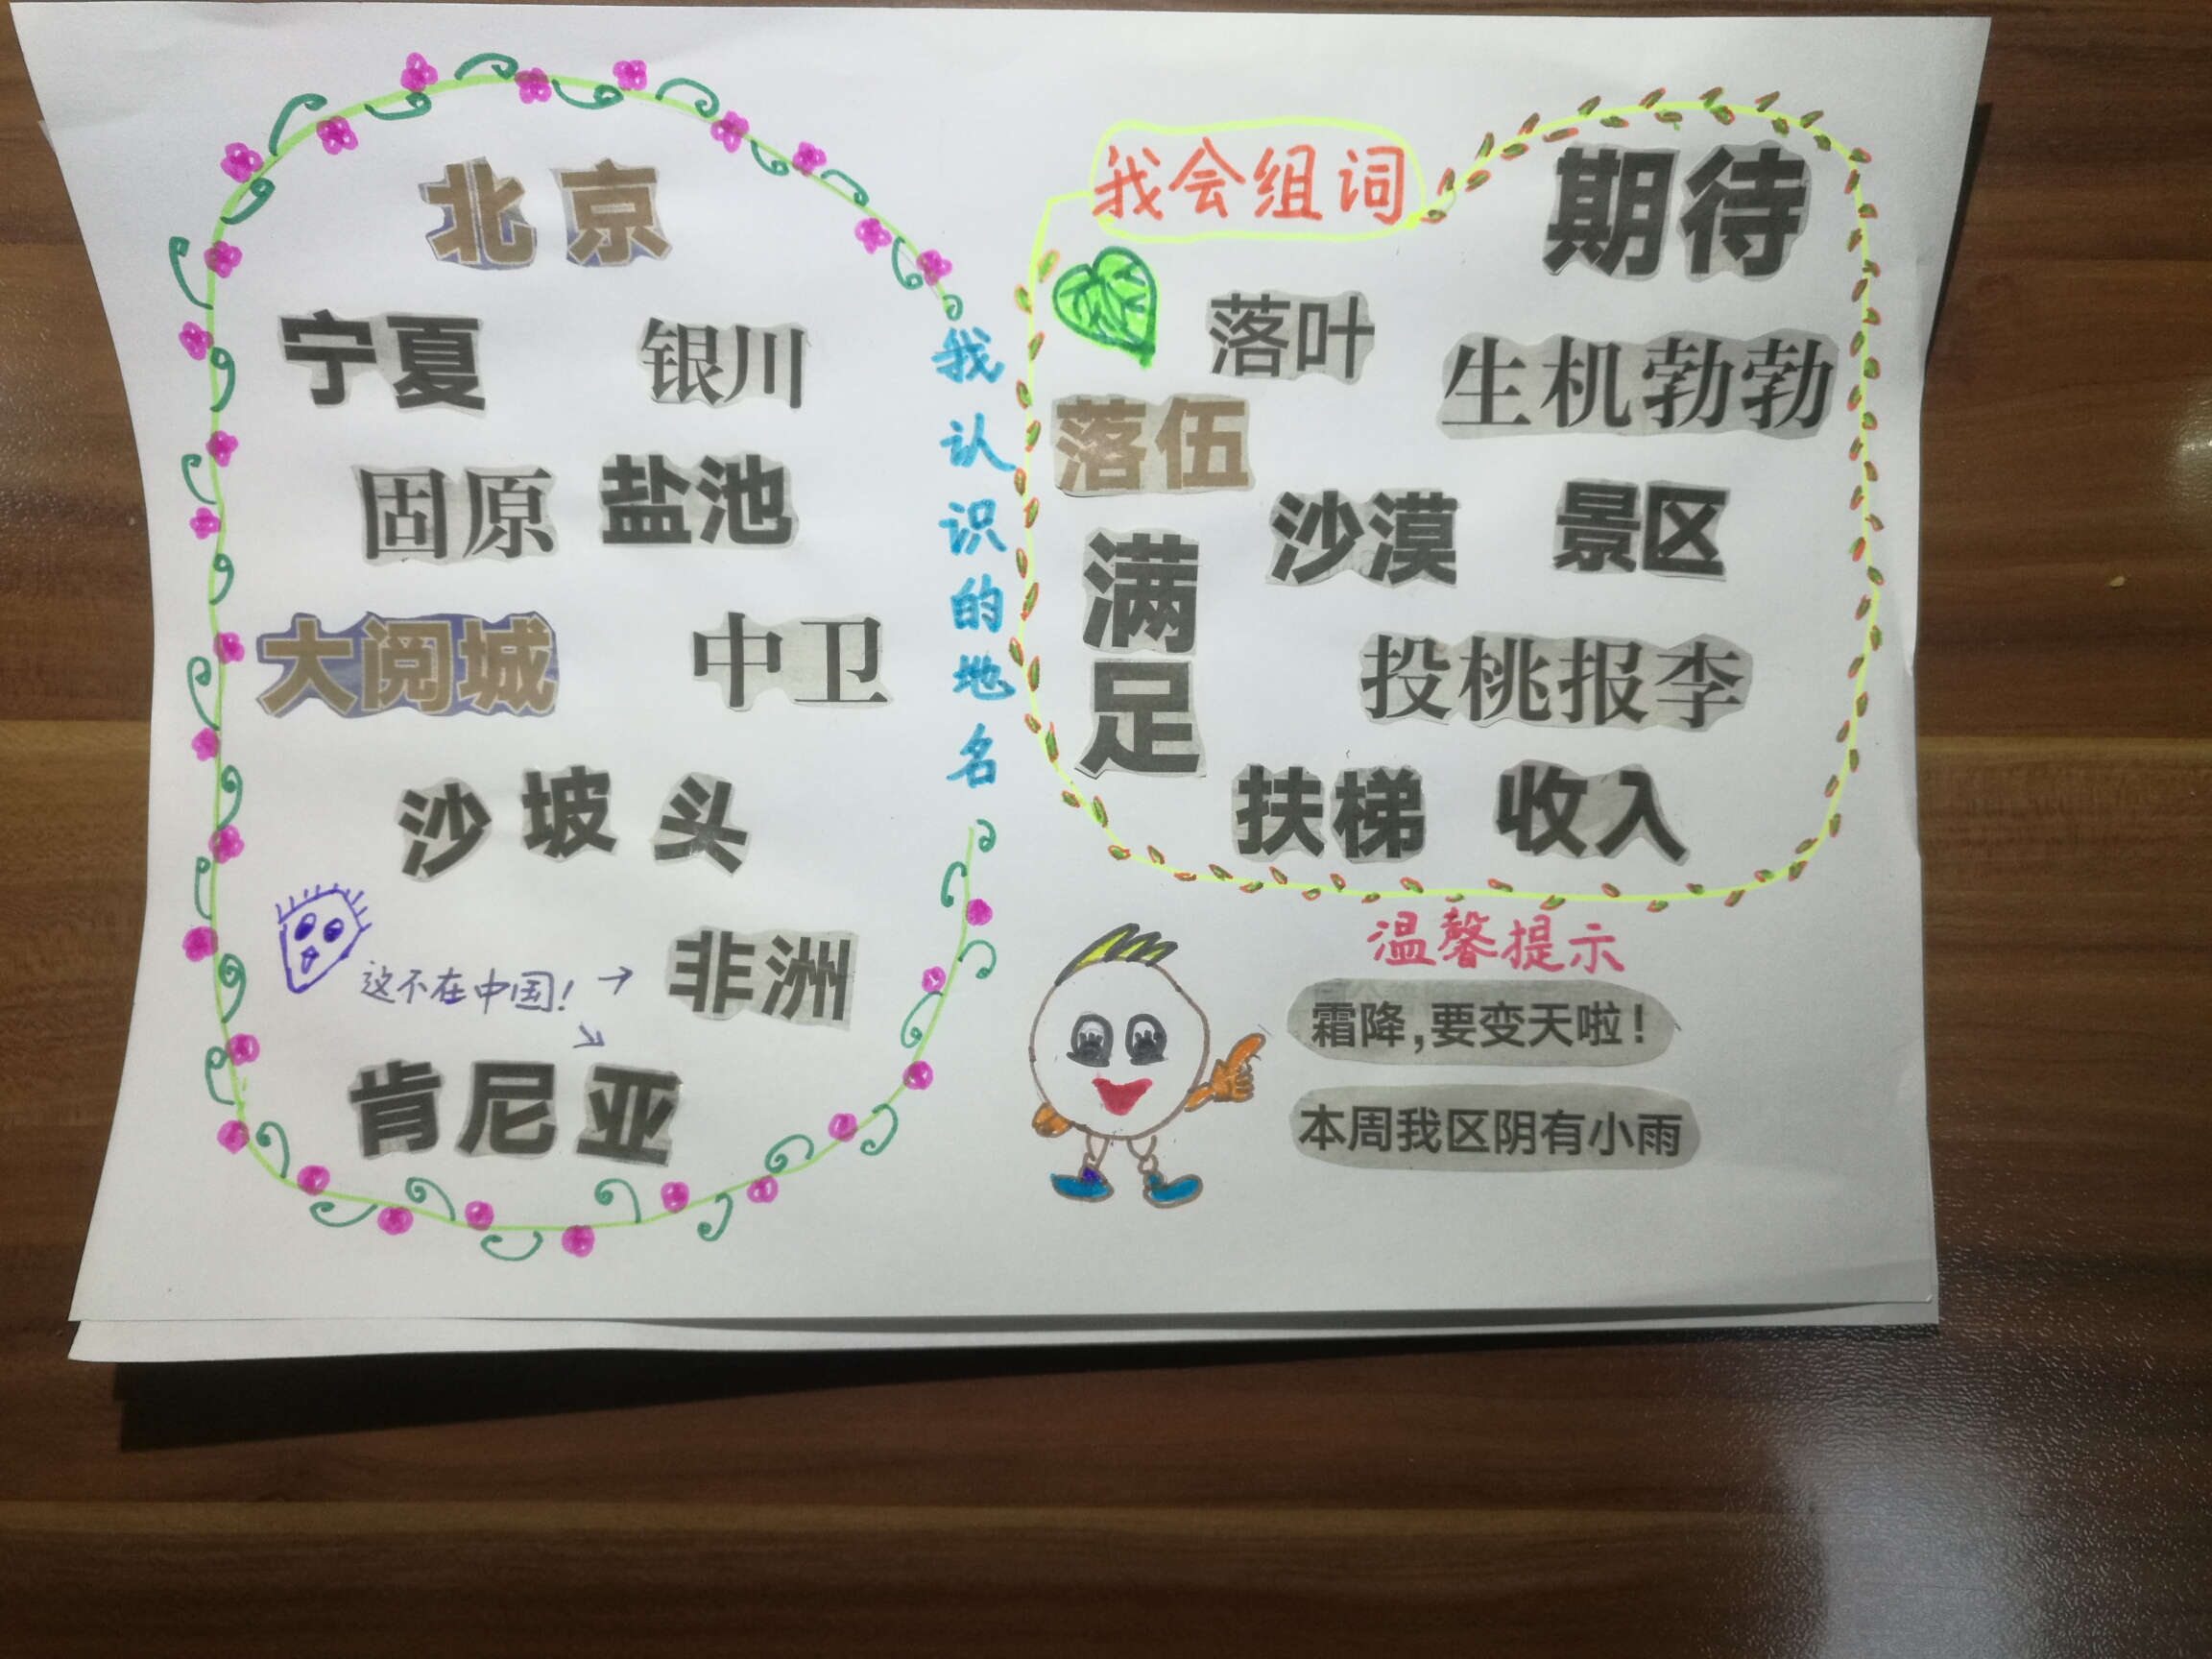 北京
宁夏 银川
固原 盐池
大阅城 中卫
沙坡头
这不在中国！→ 非洲
↘
肯尼亚
我认识的地名
我会组词
期待
落叶
生机勃勃
落伍
沙漠 景区
满足
投桃报李
扶梯 收入
温馨提示
霜降，要变天啦！
本周我区阴有小雨